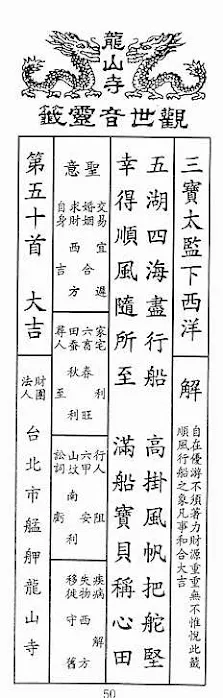 龍山寺
觀世音靈籤
三寶太監下西洋
解
自在優游不須著力財源重重無不惟悅此籤
順風行船之象凡事和合大吉
五湖四海盡行船 高掛風帆把舵堅
幸得順風隨所至 滿船寶貝稱心田
聖意
交易宜遲
婚姻合
求財西方
自身吉
家宅利
六畜春旺
田蠶秋利
尋人至
行人阻
六甲安
山墳南利
訟詞虧
疾病解
失物西方
移徙守舊
第五十首 大吉
財團法人
台北市艋舺龍山寺
50